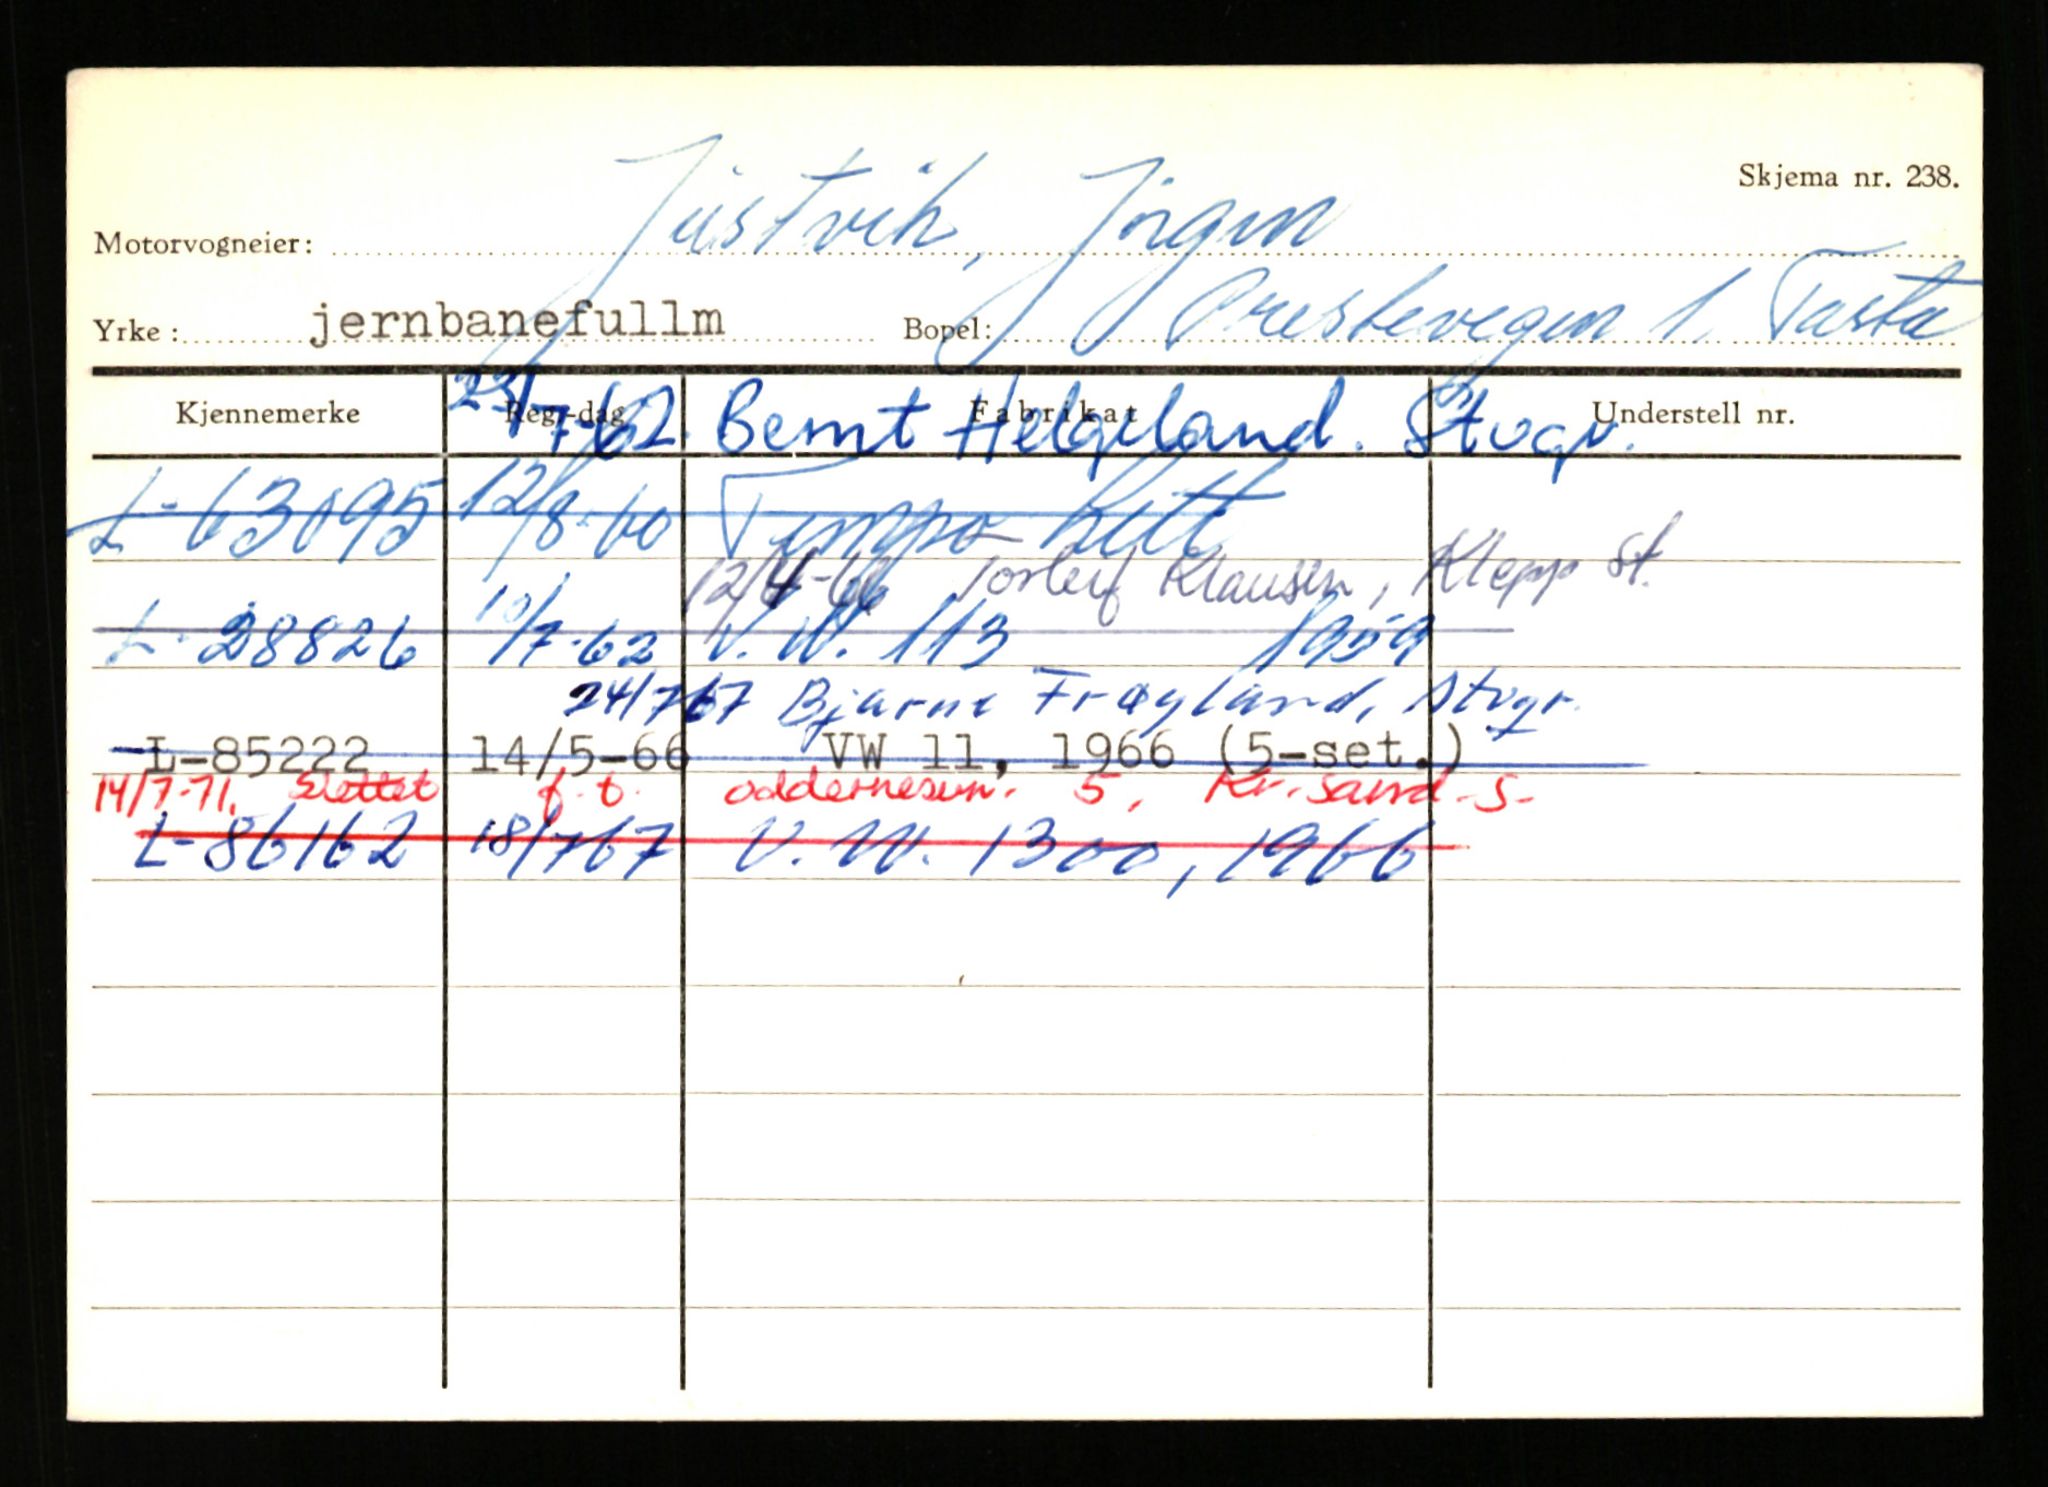 Skjema nr. 238.
Motorvogneier: Justvik, Jörgen
Yrke: jernbanefullm Bopel: Prestevegen 1. Tasta
Kjennemerke Reg.-dag Fabrikat Understell nr.
23/7-62 Bernt Helgeland. Stvgr.
L-63095 12/8-60 Tempo Kett
12/4-66 Torleif Klausen, Klepp st.
L-28826 10/7-62 V.W. 113 1959
24/767 Bjarne Frøyland, Stvgr.
L-85222 14/5-66 VW 11, 1966 (5-set.)
14/7-71. Slettet f.t. oddernesvn. 5, Kr.sand-S-
L-86162 18/767 V.W. 1300, 1966